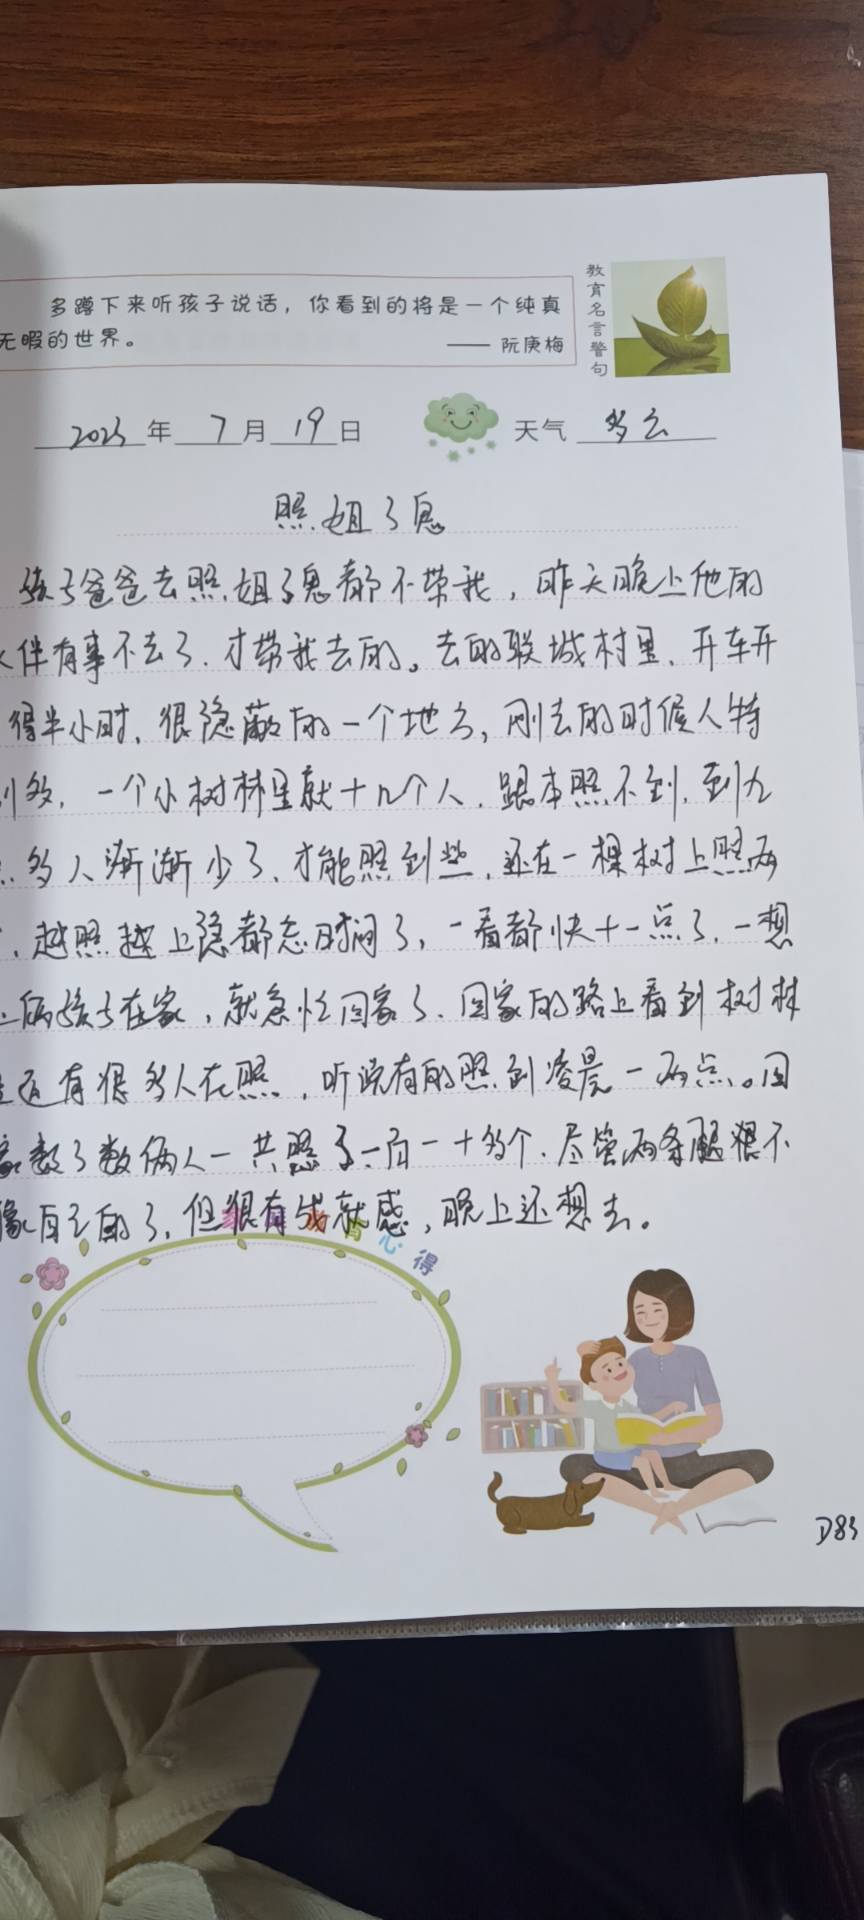 多蹲下来听孩子说话，你看到的将是一个纯真
无暇的世界。
—— 阮庚梅
教育名言警句
2023年7月19日
天气 多云
照姐了鬼
孩子爸爸去照姐了鬼都不带我，昨天晚上他的
伙伴有事不去了.才带我去的。去的联城村里、开车开
得半小时、很隐蔽的一个地方，刚去的时候人特
别多，一个小树林里就十几个人，跟本照不到，到九
点多人渐渐少了、才能照到些，还在一棵树上照两
，越照越上隐都忘时间了，一看都快十一点了，一想
上俩孩子在家，就急忙回家了、回家的路上看到树林
里还有很多人在照，听说有的照到凌晨一两点。回
家数了数俩人一共照了一百一十多个.尽管两条腿很不
像自己的了，但很有成就感，晚上还想去。
心得
D83